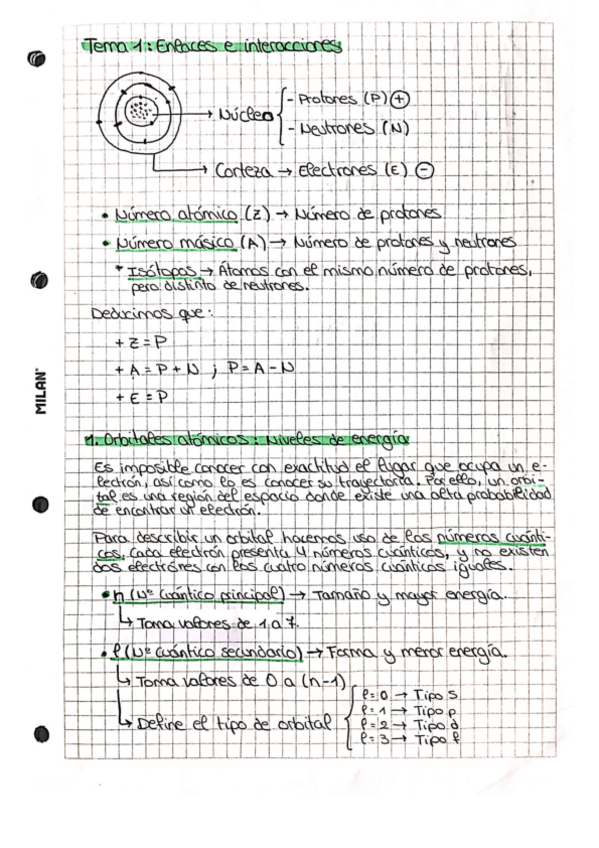 Tema 1: Enlaces e interacciones
Núcleo
- Protones (P) +
- Neutrones (N)
Corteza → Electrones (E) -
• Número atómico (Z) → Número de protones
• Número másico (A) → Número de protones y neutrones
* Isótopos → Átomos con el mismo número de protones,
pero distinto de neutrones.
Deducimos que:
+ Z = P
+ A = P + N ; P = A - N
+ E = P
MILAN
1. Orbitales atómicos: Niveles de energía
Es imposible conocer con exactitud el lugar que ocupa un e-
lectrón, así como lo es conocer su trayectoria. Por ello, un orbi-
tal es una región del espacio donde existe una alta probabilidad
de encontrar un electrón.
Para describir un orbital hacemos uso de los números cuánti-
cos. Cada electrón presenta 4 números cuánticos, y no existen
dos electrónes con los cuatro números cuánticos iguales.
• n (Nº cuántico principal) → Tamaño y mayor energía.
↳ Toma valores de 1 a 7.
• l (Nº cuántico secundario) → Forma y menor energía.
↳ Toma valores de 0 a (n-1)
↳ Define el tipo de orbital
l = 0 → Tipo s
l = 1 → Tipo p
l = 2 → Tipo d
l = 3 → Tipo f